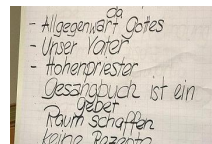 da
- Allgegenwart Gottes
- Unser Vater
- Hohenpriester
Gesangbuch ist ein
gebet
Raum schaffen
keine Rezepte